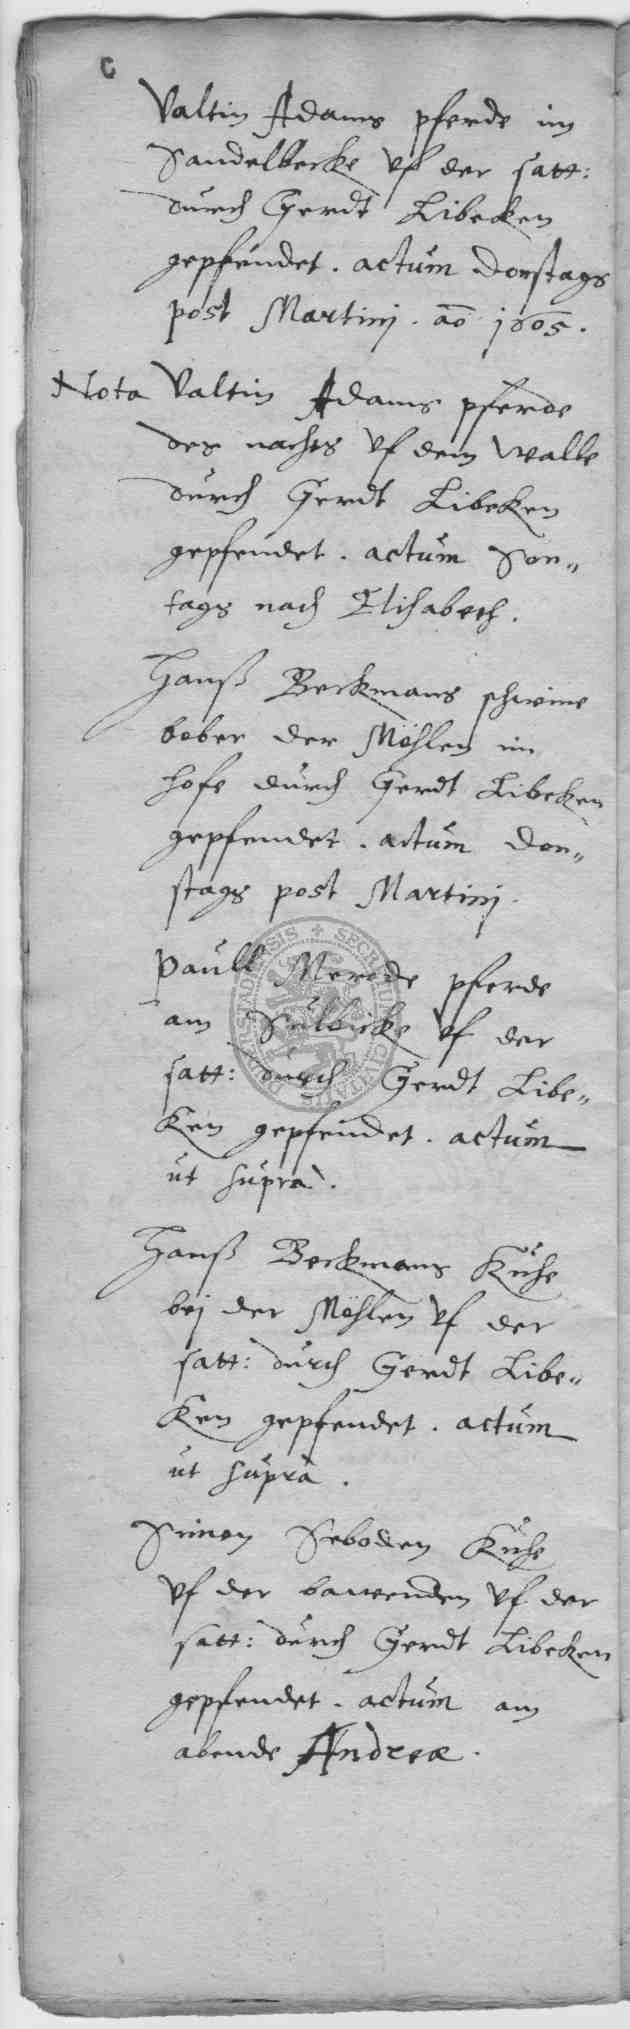 C
Valtin Adams pferde im
Sandelbecke vf der satt:
durch Gerdt Libeken
gepfendet. actum donstags
post Martinj. aō 1605.
Nota Valtin Adams pferde
des nachts vf dem walle
durch Gerdt Libeken
gepfendet. actum Son„
tags nach Elisabeth.
Hanß Beckmans schweine
bober der Möhlen im
hofe durch Gerdt Libeken
gepfendet. actum don„
stags post Martinj.
Paull Merode pferde
am Sulbicke vf der
satt: durch Gerdt Libe„
ken gepfendet. actum
ut supra.
Hanß Beckmans Kuhe
bej der Möhlen vf der
satt: durch Gerdt Libe„
ken gepfendet. actum
ut supra.
Simon Seboden Kuhe
vf der vf der
satt: durch Gerdt Libeken
gepfendet. actum am
abende Andreæ.
SECRETUM CIVITATIS